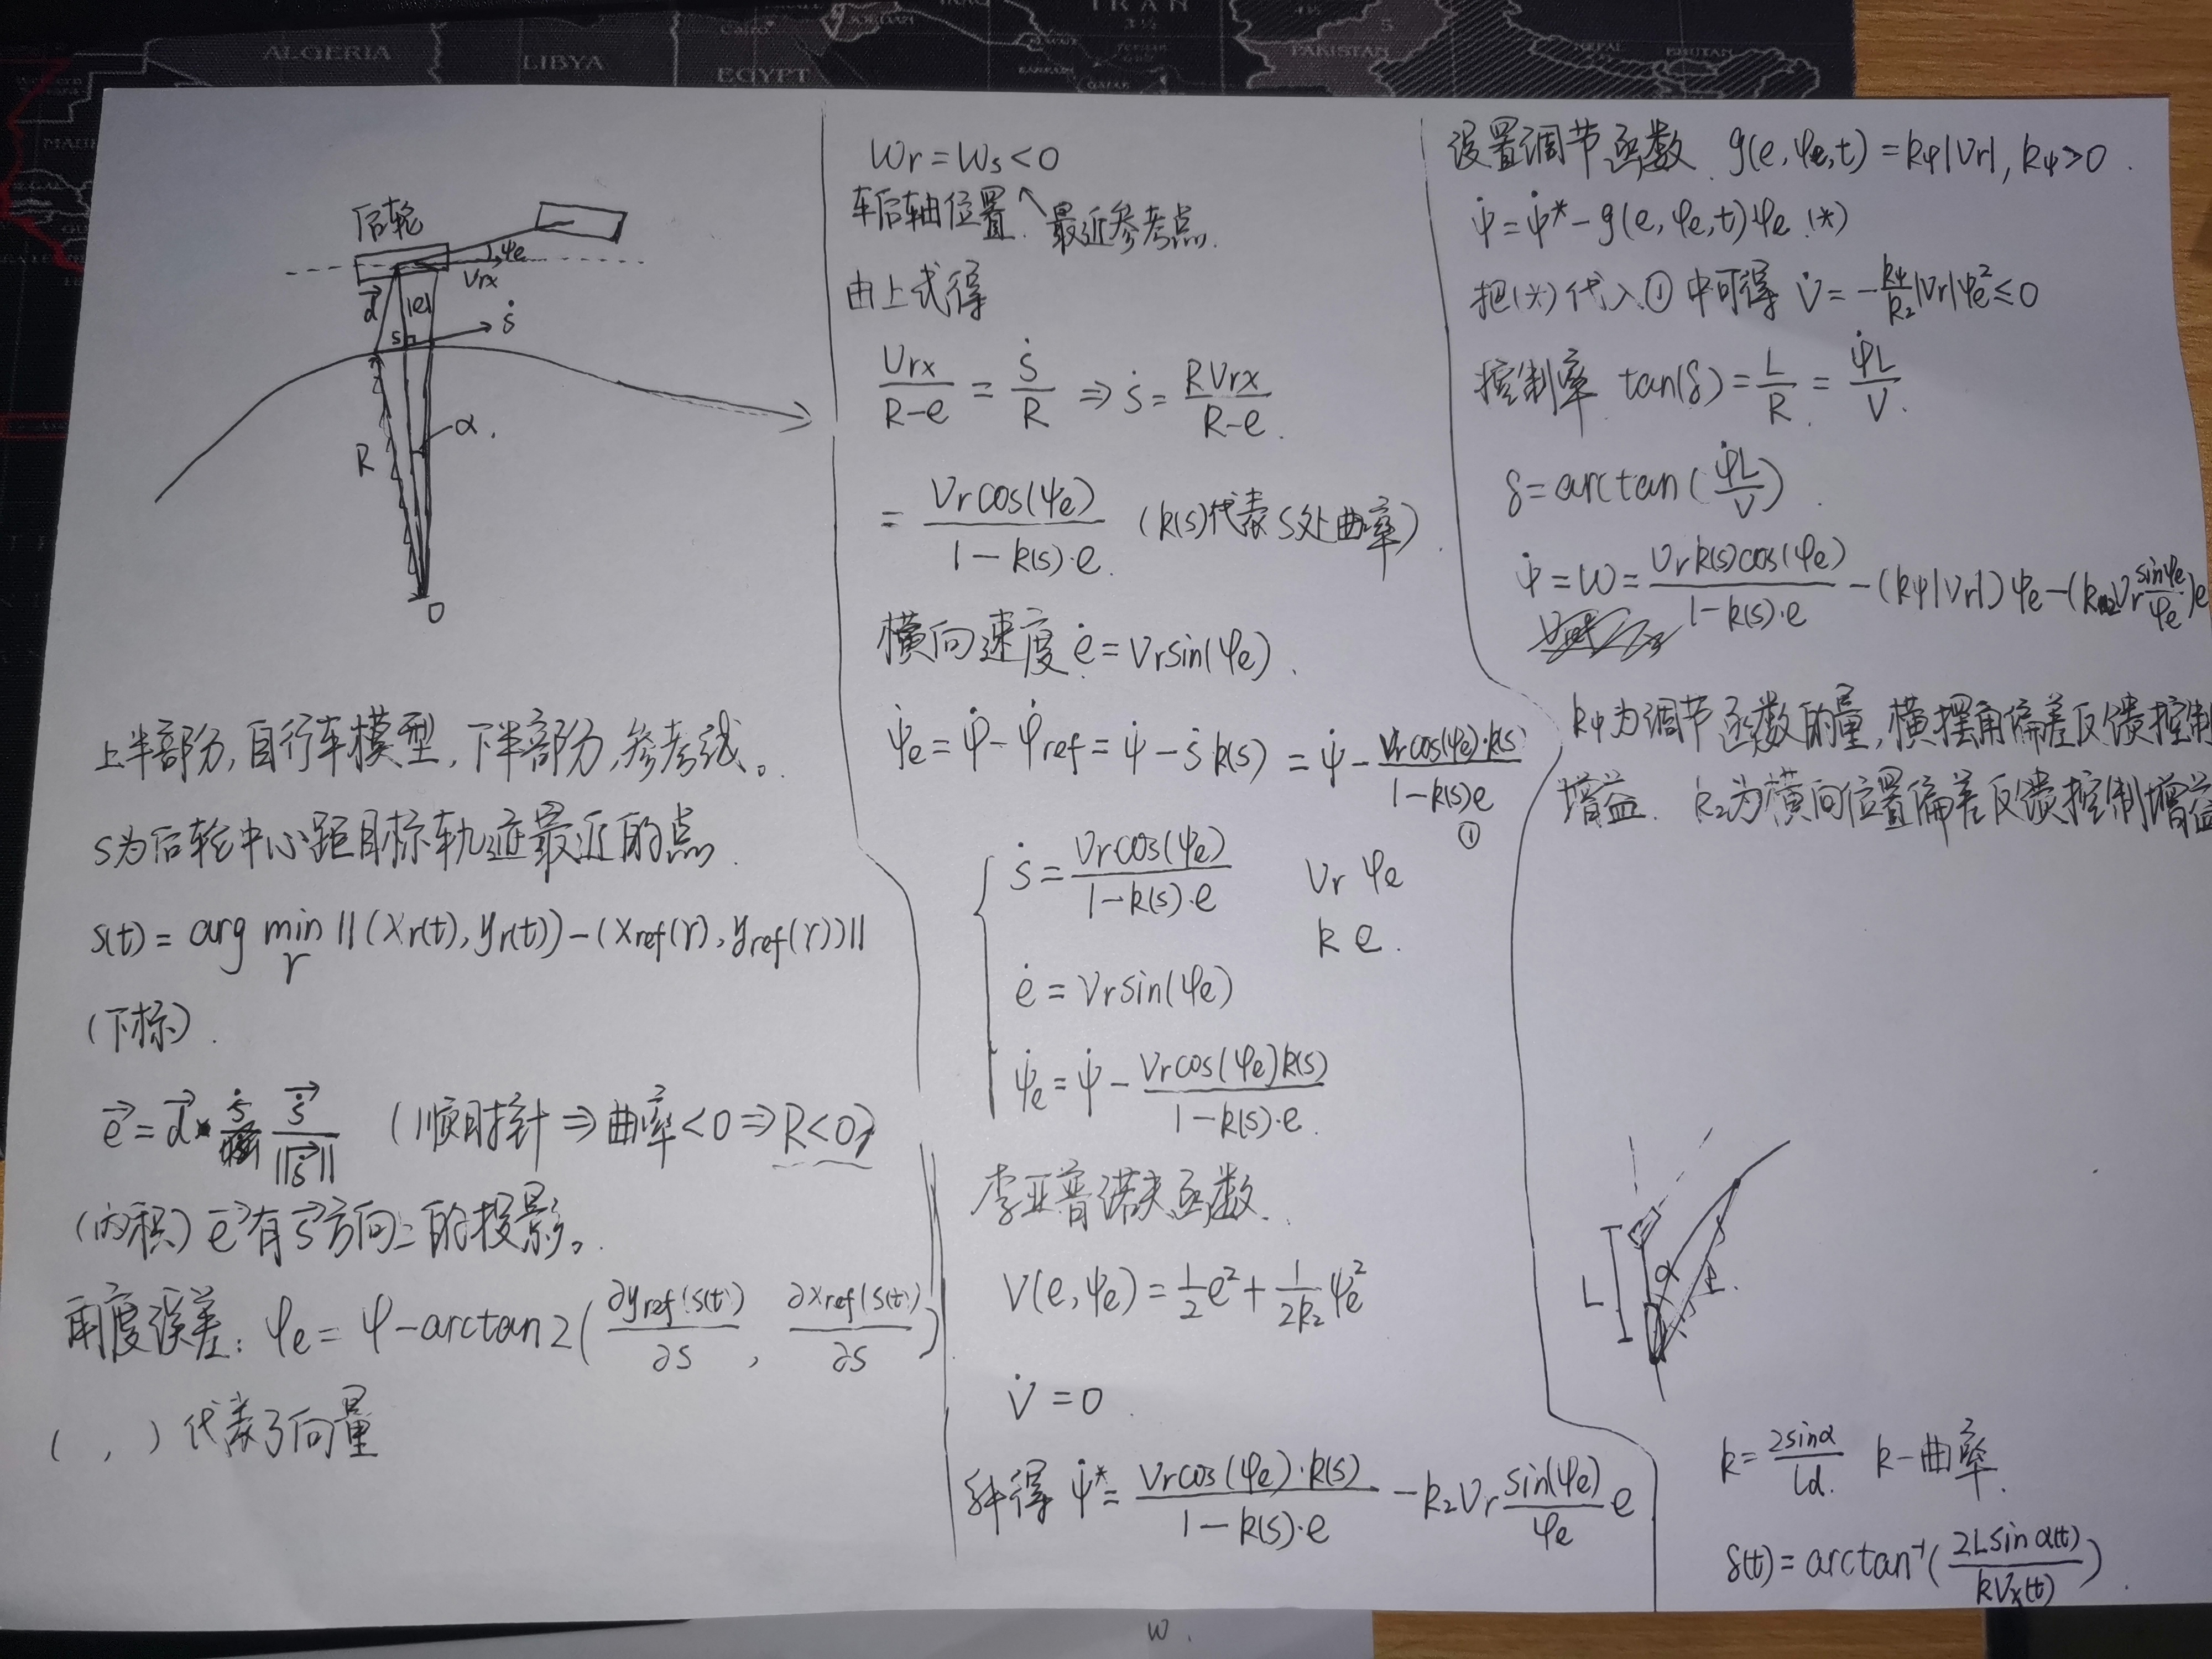 ALGERIA
LIBYA
EGYPT
Cairo
JORDAN
IRAN
PAKISTAN
NEPAL
BHUTAN
后轮
ψe
Vrx
d
|e|
s
ṡ
R
α.
O
上半部分,自行车模型,下半部分,参考线。
s为后轮中心距目标轨迹最近的点
s(t) = arg min_γ ||(Xr(t), yr(t)) - (Xref(γ), yref(γ))||
(下标).
e⃗ = d⃗ · ṡ⃗/||ṡ⃗|| (顺时针 ⇒ 曲率<0 ⇒ R<0)
(内积) e⃗有s⃗方向上的投影。
角度误差: φe = φ - arctan2(∂yref(s(t))/∂s , ∂xref(s(t))/∂s)
( , ) 代表了向量
Wr = Ws < 0
车后轴位置 最近参考点.
由上式得
Vrx/(R-e) = ṡ/R ⇒ ṡ = RVrx/(R-e).
= Vrcos(ψe)/(1-k(s)·e) (k(s)代表s处曲率)
横向速度 ė = Vrsin(φe).
ψ̇e = ψ̇ - φ̇ref = ψ̇ - ṡk(s) = ψ̇ - Vrcos(φe)·k(s)/(1-k(s)e) ①
ṡ = Vrcos(φe)/(1-k(s)·e) Vr φe
k e.
ė = Vrsin(φe)
ψ̇e = ψ̇ - Vrcos(φe)k(s)/(1-k(s)·e).
李亚普诺夫函数.
V(e, ψe) = 1/2 e² + 1/(2k₂) ψe²
V̇ = 0
解得 ψ̇* = Vrcos(φe)·k(s)/(1-k(s)·e) - k₂Vr sin(φe)/φe e
设置调节函数 g(e, φe, t) = kψ|Vr|, kψ>0.
ψ̇ = ψ̇* - g(e, φe, t)φe (*)
把(*)代入①中可得 V̇ = -kψ/k₂|Vr|φe² ≤ 0
控制率 tan(δ) = L/R = ψ̇L/V.
δ = arctan(ψ̇L/V).
ψ̇ = W = Vrk(s)cos(φe)/(1-k(s)·e) - (kψ|Vr|)φe - (k₂Vr sinφe/φe)e
kψ为调节函数的量,横摆角偏差反馈控制
增益. k₂为横向位置偏差反馈控制增益
L
α
k = 2sinα/ld. k-曲率.
δ(t) = arctan⁻¹(2Lsinα(t)/kVx(t)).
w.